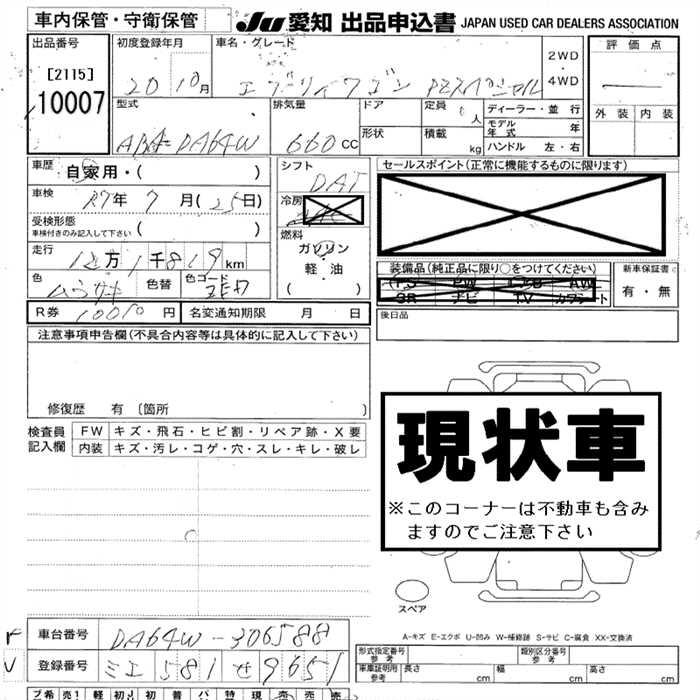 車内保管・守衛保管
JU 愛知 出品申込書 JAPAN USED CAR DEALERS ASSOCIATION
出品番号 初度登録年月 車名・グレード 2WD・4WD 評価点
[2115]
10007
20 10月 エブリイワゴン PZスペシャル
外装 内装
型式 排気量 ドア 定員 人 ディーラー・並行
モデル年式 年
ABA-DA64W 660cc 形状 積載 kg ハンドル 左・右
車歴 自家用・( )
シフト DAT
セールスポイント(正常に機能するものに限ります)
車検 R7年 7月(25日)
冷房
受検形態
車検付きのみ記入して下さい ( )
燃料
ガソリン
軽・油
( )
走行 12万1千819km
色 ムラサキ 色替 色コード
装備品(純正品に限り○をつけてください) 新車保証書
PS PW AW
SR ナビ TV カワシート
有・無
R券 10010円 名変通知期限 月 日
後日品
注意事項申告欄(不具合内容等は具体的に記入して下さい)
修復歴 有 〔箇所 〕
検査員記入欄 FW キズ・飛石・ヒビ割・リペア跡・X要
内装 キズ・汚レ・コゲ・穴・スレ・キレ・破レ
現状車
※このコーナーは不動車も含み
ますのでご注意下さい
スペア
A-キズ E-エクボ U-凹み W-補修跡 S-サビ C-腐食 XX-交換済
車台番号 DA64W-306588
登録番号 ミエ581せ9651
形式指定番号 参考 類別区分番号 参考
車庫証明用 参考 長さ cm 幅 cm 高さ cm